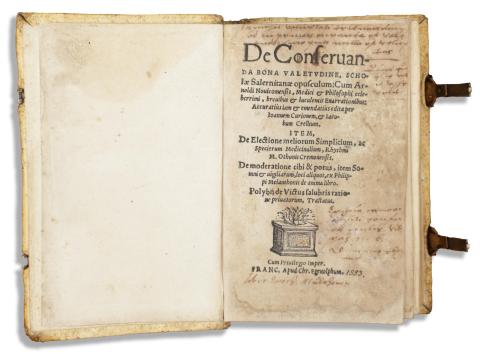 De Conſeruan-
DA BONA VALETVDINE, SCHO-
læ Salernitanæ opuſculum: Cum Ar-
noldi Nouicomenſis, Medici & Philoſophi cele-
berrimi, breuibus & luculentis Enarrationibus:
Accuratius iam & emendatius edita per
Ioannem Curionem, & Iaco-
bum Crellium.
ITEM,
De Electione meliorum Simplicium, ac
Specierum Medicinalium, Rhythmi
M. Othonis Cremonenſis.
De moderatione cibi & potus, item So-
mni & uigiliarum, loci aliquot, ex Philip-
pi Melanthonis de anima libro.
Polybi, de Victus ſalubris ratio-
ne priuatorum, Tractatus.
Cum Priuilegio Imper.
FRANC. Apud Chr. Egnolphum. 1553